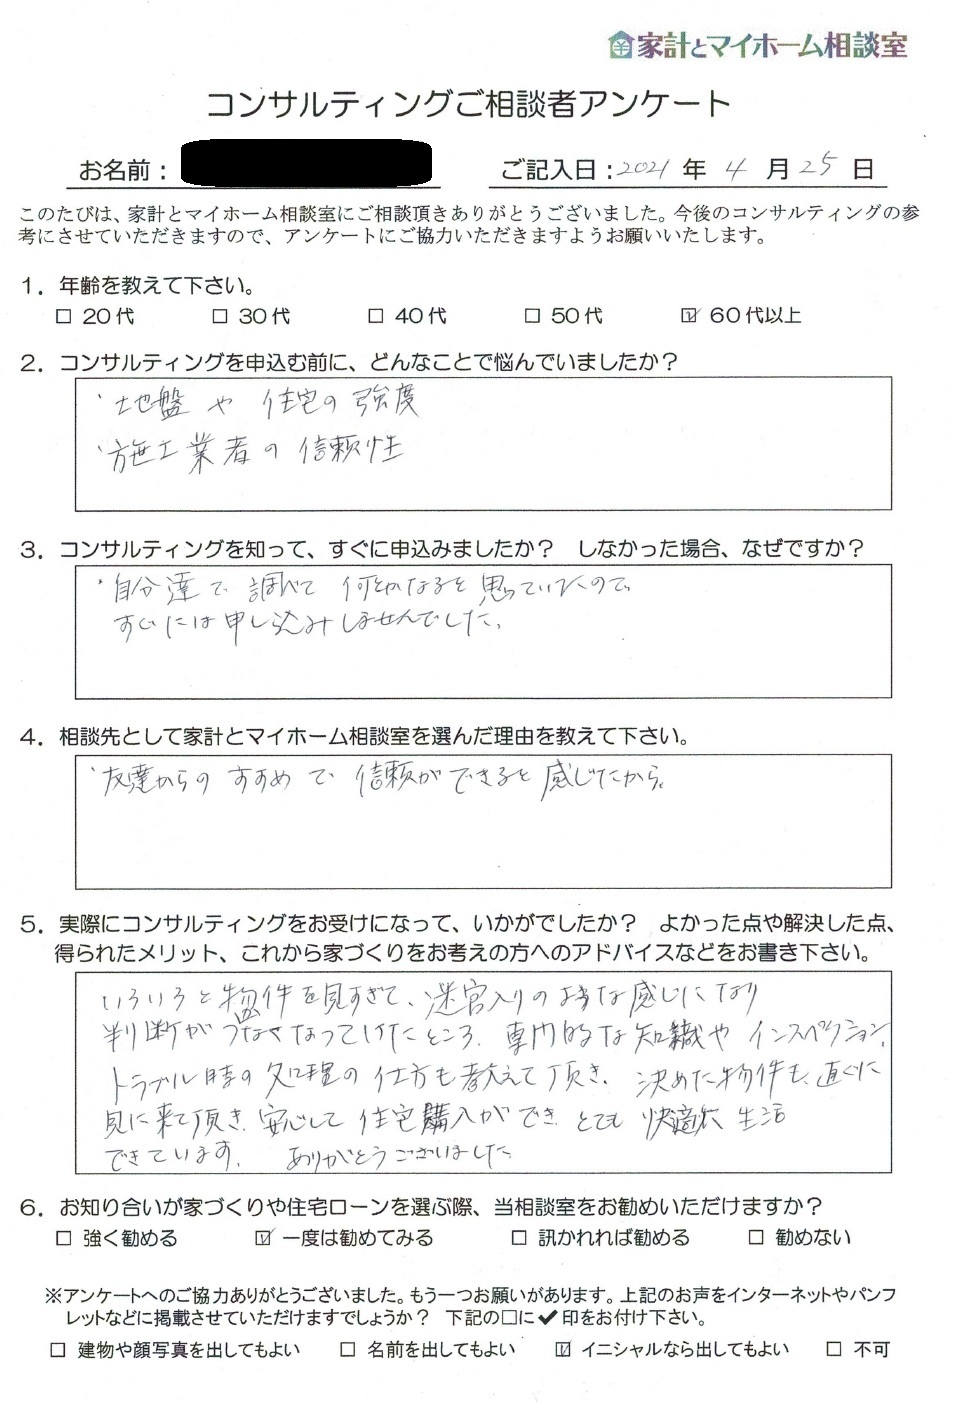 家計とマイホーム相談室
コンサルティングご相談者アンケート
お名前： ご記入日：2021 年 4 月 25 日
このたびは、家計とマイホーム相談室にご相談頂きありがとうございました。今後のコンサルティングの参
考にさせていただきますので、アンケートにご協力いただきますようお願いいたします。
１．年齢を教えて下さい。
□ 20代 □ 30代 □ 40代 □ 50代 ☑ 60代以上
２．コンサルティングを申込む前に、どんなことで悩んでいましたか？
・地盤や 住宅の強度
・施工業者の信頼性
３．コンサルティングを知って、すぐに申込みましたか？　しなかった場合、なぜですか？
・自分達で調べて何とかなると思っていたので、
すぐには申し込みしませんでした。
４．相談先として家計とマイホーム相談室を選んだ理由を教えて下さい。
・友達からのすすめで信頼ができると感じたから。
５．実際にコンサルティングをお受けになって、いかがでしたか？　よかった点や解決した点、
得られたメリット、これから家づくりをお考えの方へのアドバイスなどをお書き下さい。
いろいろと物件を見すぎて、迷宮入りのような感じになり
判断がつかなくなっていたところ、専門的な知識やインスペクション、
トラブル時の処理の仕方も教えて頂き、決めた物件も、直ぐに
見に来て頂き、安心して住宅購入ができ、とても快適な生活
できています。ありがとうございました
６．お知り合いが家づくりや住宅ローンを選ぶ際、当相談室をお勧めいただけますか？
□ 強く勧める ☑ 一度は勧めてみる □ 訊かれれば勧める □ 勧めない
※アンケートへのご協力ありがとうございました。もう一つお願いがあります。上記のお声をインターネットやパンフ
レットなどに掲載させていただけますでしょうか？　下記の□に✔印をお付け下さい。
□ 建物や顔写真を出してもよい □ 名前を出してもよい ☑ イニシャルなら出してもよい □ 不可